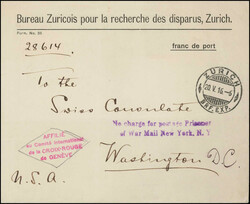 Bureau Zuricois pour la recherche des disparus, Zurich.
Form. No. 20
28614
franc de port
To the
ZÜRICH
20.V.16-6
BRF. EXP.
Swiss Consulate
No charge for postage Prisoner
of War Mail New York, N. Y
AFFILIÉ
au Comité International
de la CROIX-ROUGE
de GENÈVE
Washington D.C.
U.S.A.